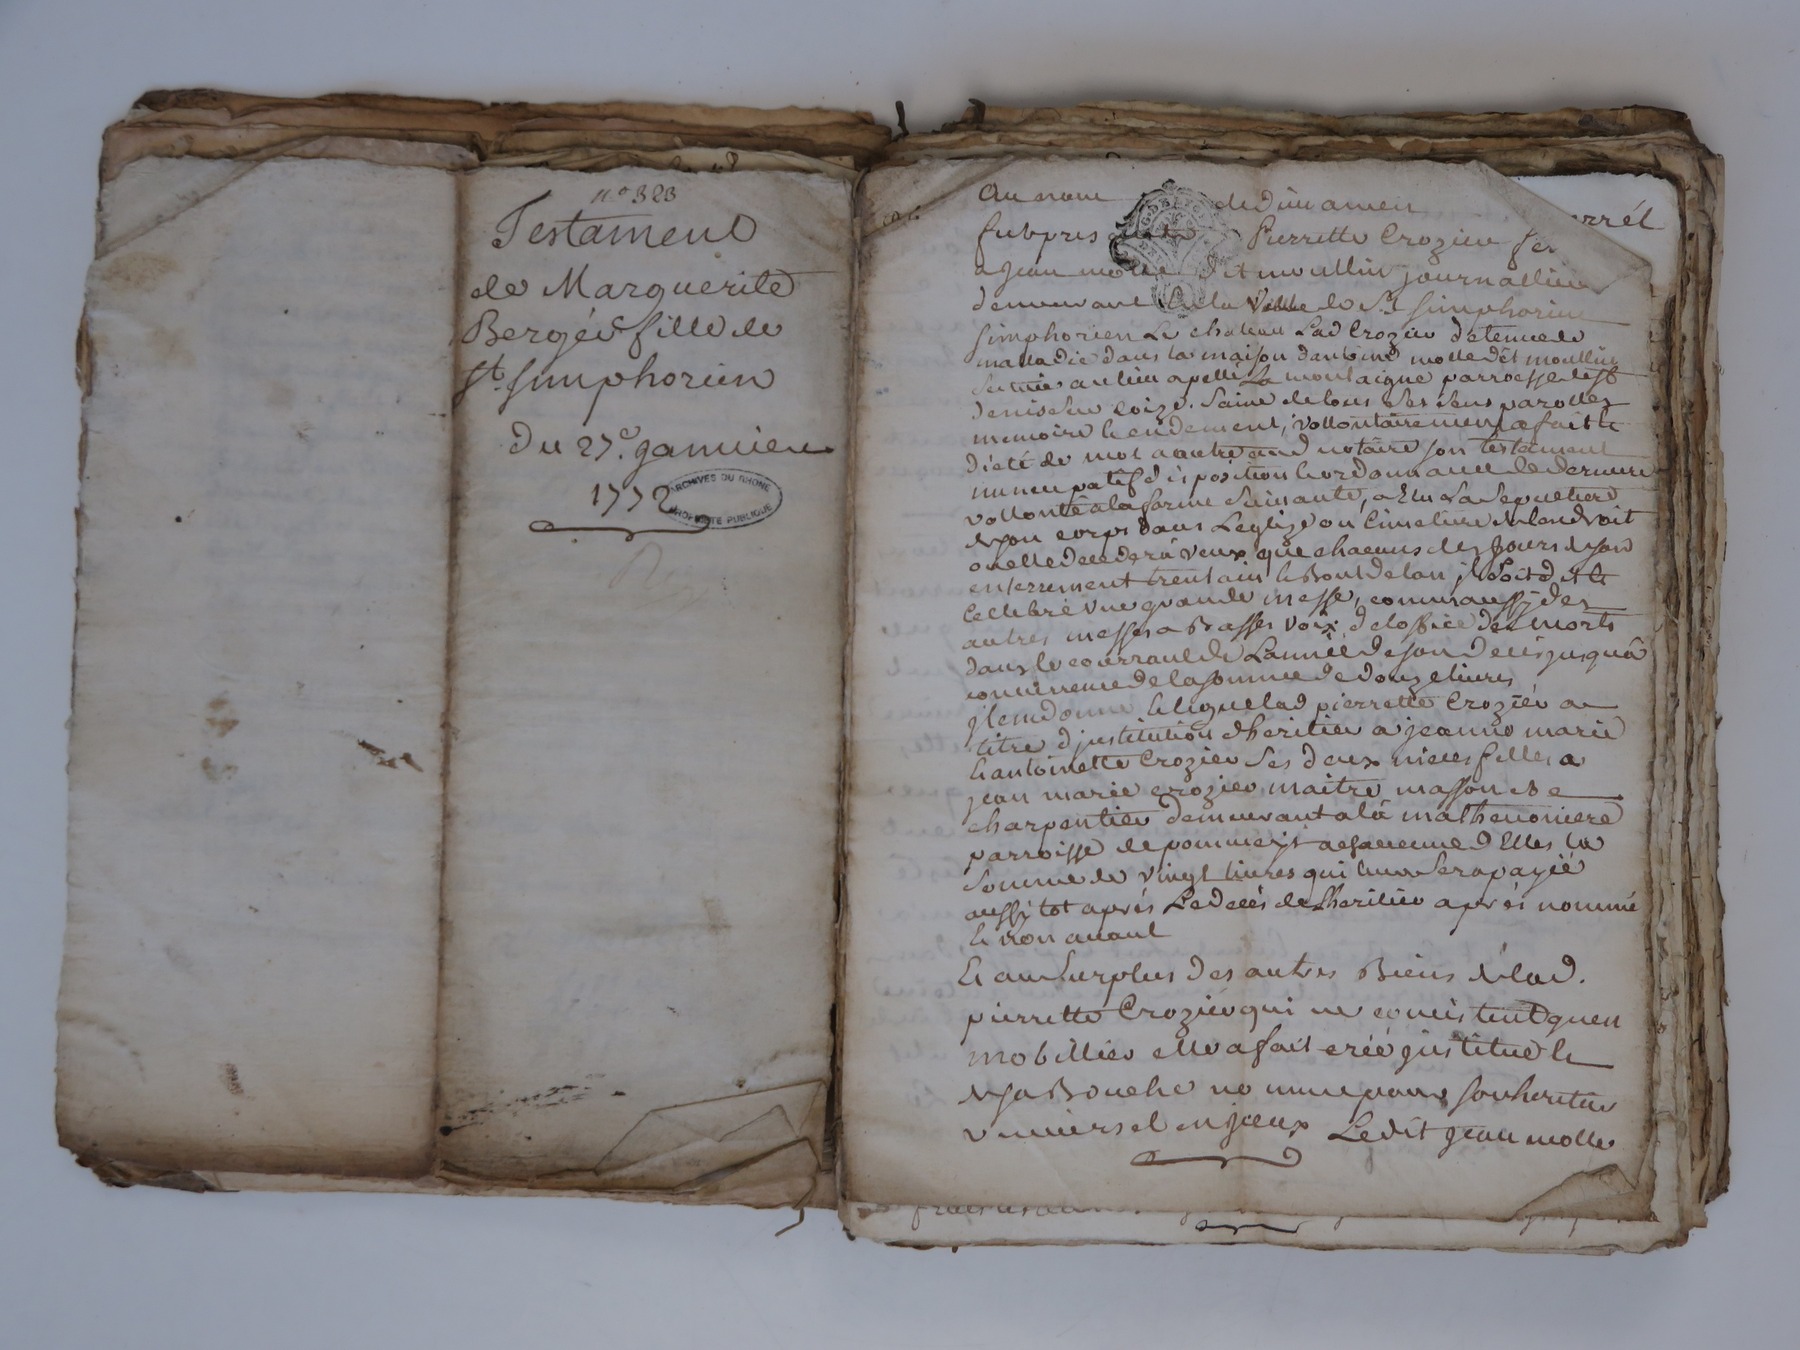 n° 323
Testament
de Marguerite
Bergér fille de
St. simphorien
Du 27e. janvier
1772
ARCHIVES DU RHONE
PROPRIETE PUBLIQUE
Au nom de dieu amen
fut pres Pierrette Crozier
a jean molle dit moullin journallier
demeurant la Ville de St Simphorien
simphorien Le chateau Lad Crozier detenue de
malladie dans la maison dantoine molle dit moullin
scituée au lieu apellé La montaigne parroisse de St
denis sur coize. saine de tous ses sens parolles
memoire & endement, vollontairement a fait &
dicté de mot a autre aud notaire son testament
nuncupatif disposition & ordonnance de derniere
vollonté a la forme suivante, a Elu sa sepulture
de son corps dans Leglize ou Cimetiere de landroit
ou elle decedera veux que chacuns des jours de son
enterrement trentain & Bout de lan jl soit dit &
celebré une grande messe, comme aussy des
autres messes a Basses voix de loffice des morts
dans le courrant de Lannée de son deces jusqua
concurrence de la somme de douze livres
jtem donne & legue lad pierrette Crozier a
titre djnstitution dheritier a jeanne marie
& antoinette Crozier ses deux nieces filles a
jean marie crozier maitre masson &
charpentier demeurant a la mathevoniere
parroisse de pommeys a chacunne d'Elles la
somme de vingt livres qui leur sera payié
aussy tot aprés Le decés de Lheritier aprés nommé
& non avant
Et au surplus des autres Biens de lad.
pierrette Crozier qui ne consistent quen
mobillier elle a fait creé jnstitué &
de sa Bouche nommé pour son heritier
universel en jceux Ledit jean molle